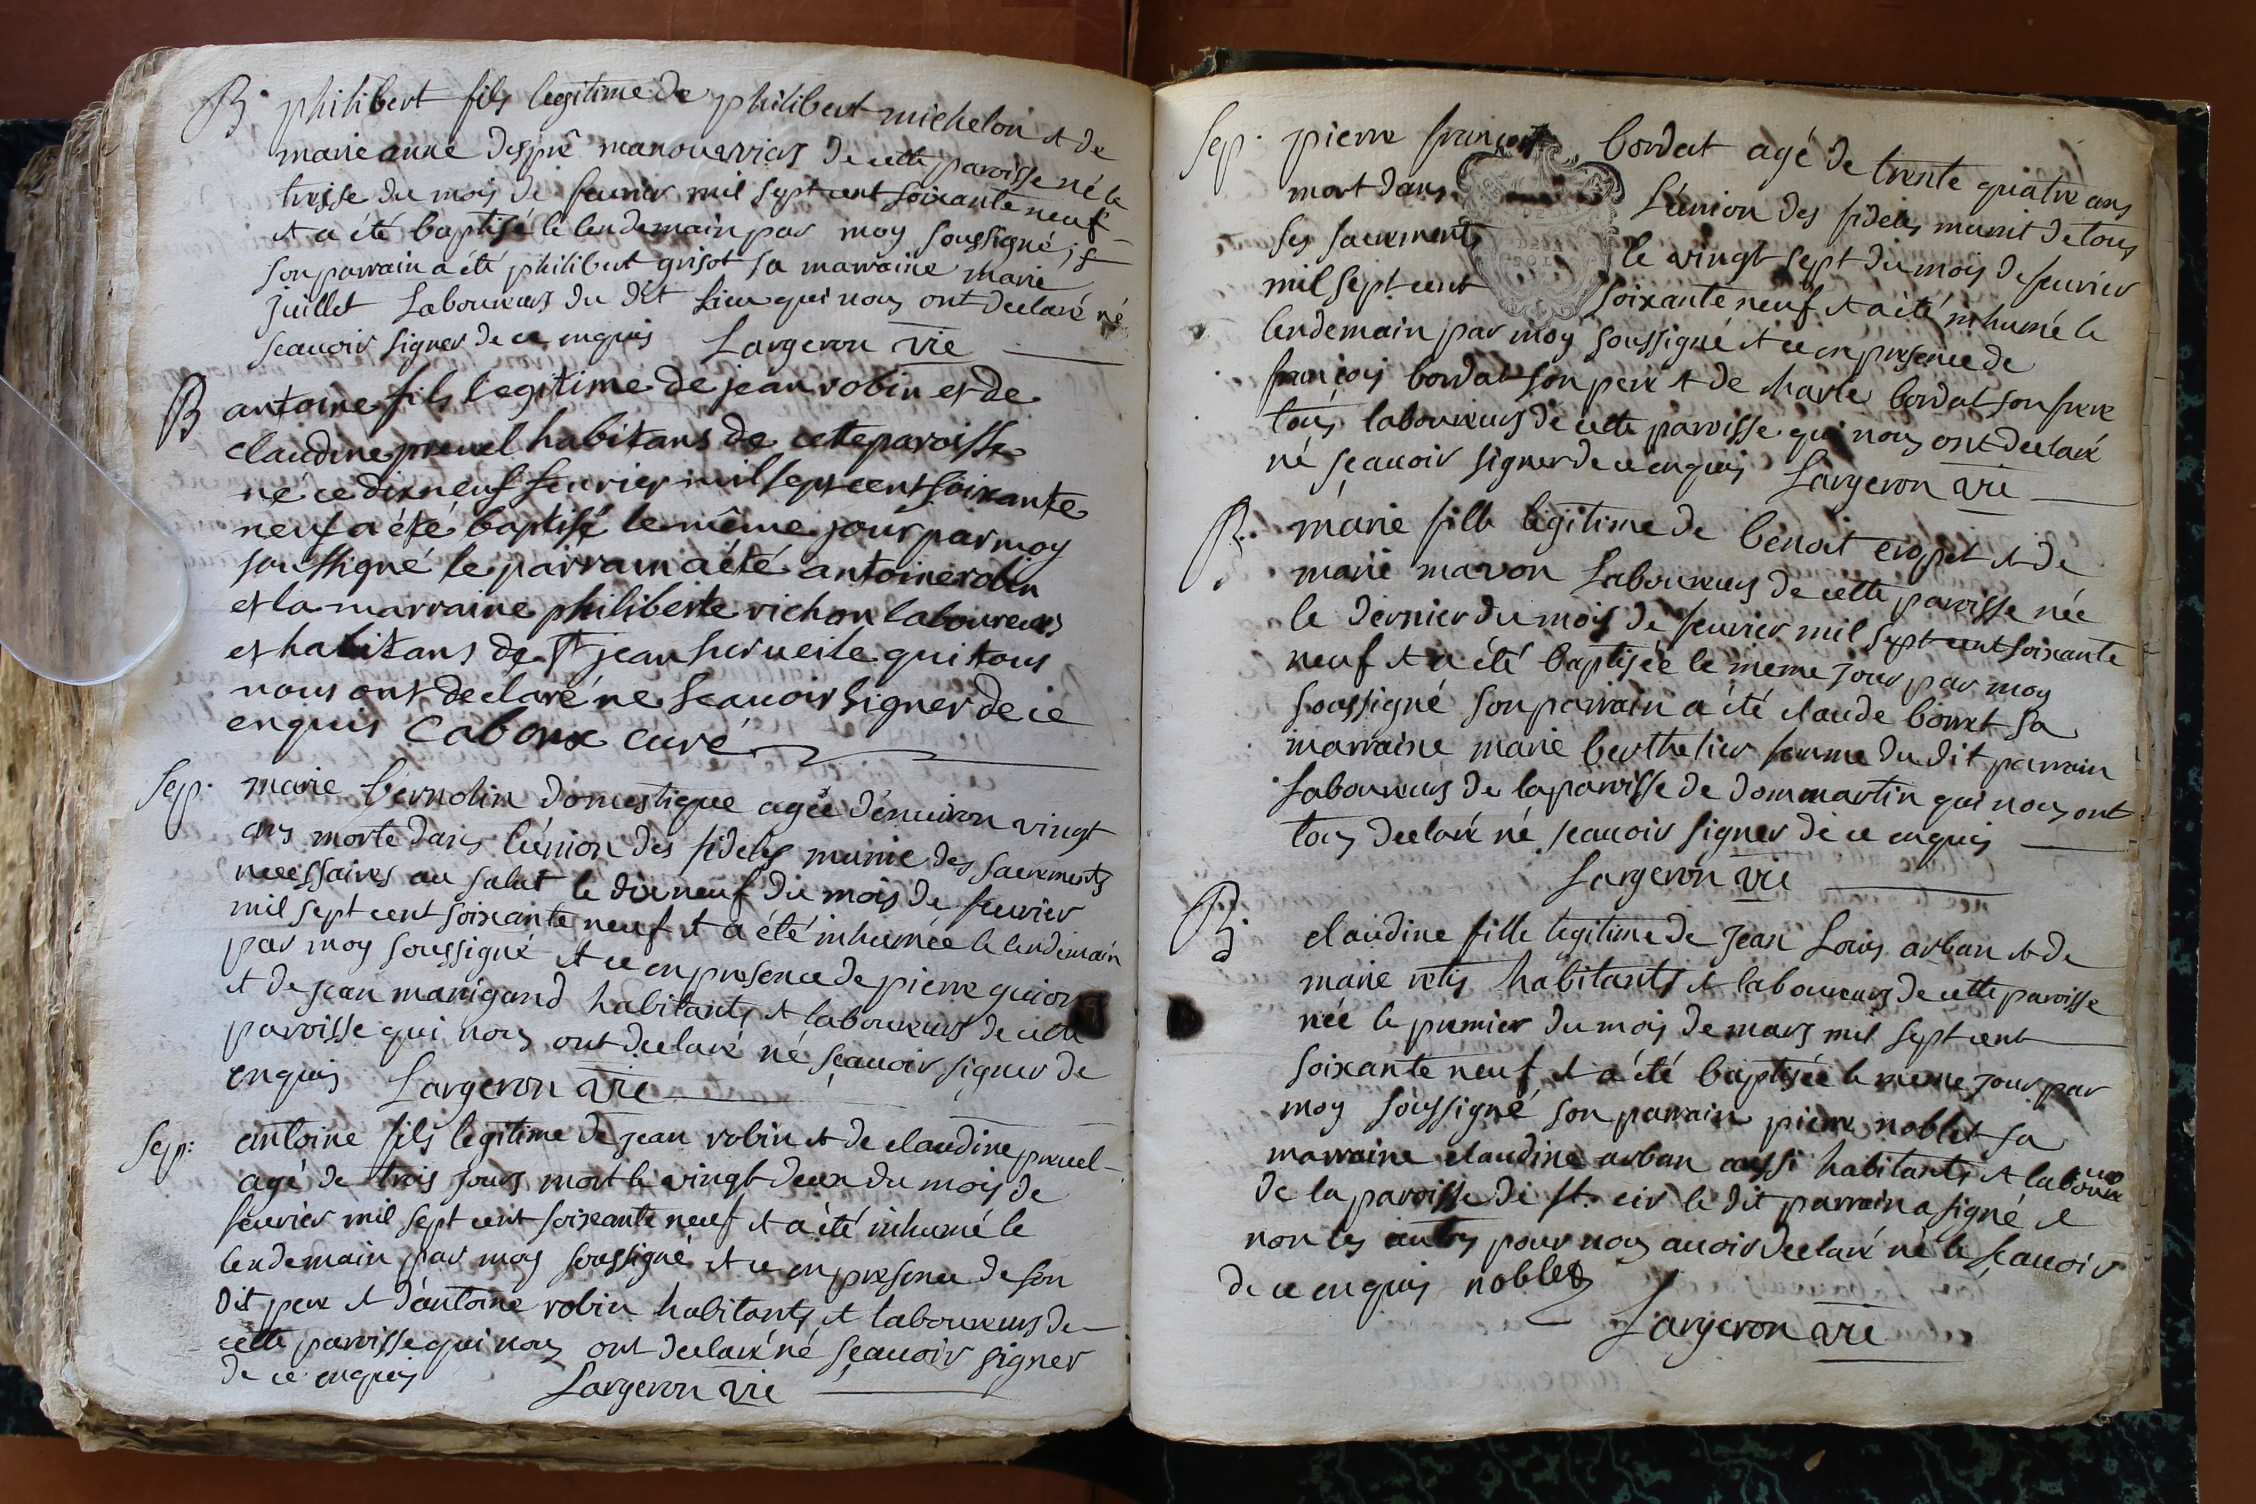 B. philibert fils legitime de philibert michelon et de
marie anne despré manouvriers de cette paroisse né le
treisse du mois de feuvrier mil sept cent soixante neuf
et a été baptisé le lendemain par moy soussigné,
son parrain a été philibert grisot sa marraine marie
juillet Laboureurs du dit lieu qui nous ont declaré né
scauoir signer de ce enquis Largeron vie
B antoine fils legitime de jean robin et de
claudine preuel habitans de cette paroisse
né ce dixneuf feurier mil sept cent soixante
neuf a été baptisé le même jour par moy
soussigné le parrain a été antoine robin
et la marraine philiberte richon laboureurs
et habitans de st jean surueile qui tous
nous ont declaré ne scauoir signer de ce
enquis Caboux curé
Sep. marie bernolin domestique agée d'enuiron vingt
ans morte dans l'ẻnion des fideles munie des sacrements
necessaires au salut le dixneuf du mois de feurier
mil sept cent soixante neuf et a été inhumée le lendemain
par moy soussigné et ce en presence de pierre guion
et de jean manigand habitants et laboureurs de cette
paroisse qui nous ont declaré né scauoir signer de
enquis Largeron vie
Sep: antoine fils legitime de jean robin et de claudine preuel
agé de trois jours mort le vingt deux du mois de
feurier mil sept cent soixante neuf et a été inhumé le
lendemain par moy soussigné et ce en presence de son
dit pere et d'antoine robin habitants et laboureurs de
cette paroisse qui nous ont declaré né scauoir signer
de ce enquis Largeron vie
Sep. pierre françois bordat agé de trente quatre ans
mort dans L'énion des fideles munit de tous
ses sacrements le vingt sept du mois de feurier
mil sept cent soixante neuf et a été inhumé le
lendemain par moy soussigné et ce en presence de
françois bordat son pere et de charle bordat son frere
tous laboureurs de cette paroisse qui nous ont declaré
né scauoir signer de ce enquis Largeron vie
B. marie fille legitime de benoit crozet et de
marie mavon Laboureurs de cette paroisse née
le dernier du mois de feurier mil sept cent soixante
neuf et a été baptisée le meme jour par moy
soussigné son parrain a été claude borret sa
marraine marie berthelier femme du dit parrain
Laboureurs de la paroisse de dommartin qui nous ont
tous declaré né scauoir signer de ce enquis
Largeron vie
B. claudine fille legitime de Jean Louis arban et de
marie retis habitants et laboureurs de cette paroisse
née le premier du mois de mars mil sept cent
soixante neuf et a été baptisée le meme jour par
moy soussigné son parrain pierre noblet sa
marraine claudine arban aussi habitants et laboureurs
de la paroisse de st. cir le dit parrain a signé et
non les autres pour nous auoir declaré né le scauoir
de ce enquis noblet
Largeron vie